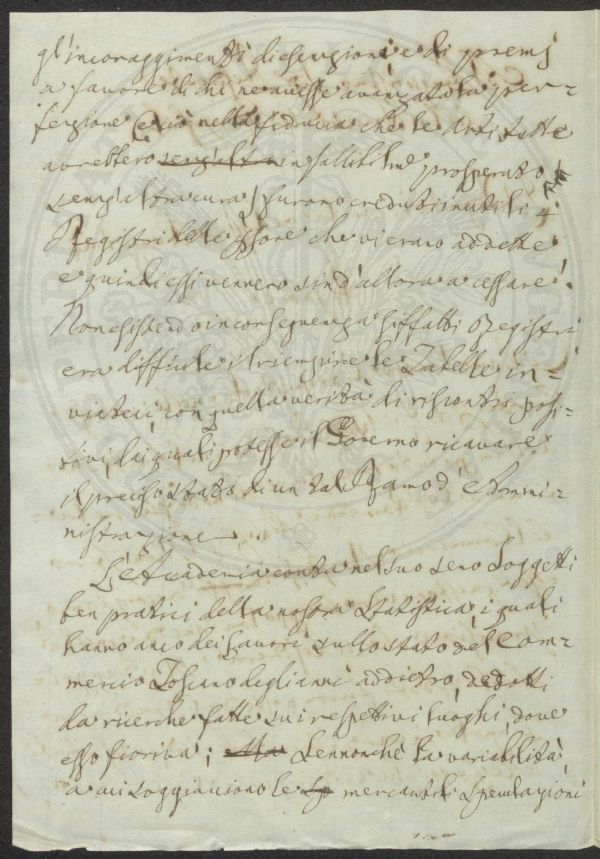 gl'incoraggimenti di esenzioni e di premj
a favore di chi ne avesse avanzato la per-
fezione (e ciò nella fiducia che le Arti tutte
avrebbero senz'alt infallibilm.e prosperato
senz'altra cura) furono creduti inutili i
Registri delle psone che vi erano addette
e quindi essi vennero sin d'allora a cessare.
Non esistendo in conseguenza siffatti Registri
era difficile il riempire le Tabelle in-
viateci, con quella verità di riscontri posi-
tivi, dai quali potesse il Governo ricavare
il preciso stato di un tal Ramo d'Ammi-
nistrazione.
L'Accademia conta nel suo seno Soggetti
ben pratici della nostra Statistica, i quali
hanno anco dei lavori sullo stato del Com-
mercio Toscano degli anni addietro, dedotti
da ricerche fatte sui respettivi luoghi, dove
esso fioriva; Ma Sennonchè la variabilità,
a cui soggiacciono le sp mercantili speculazioni